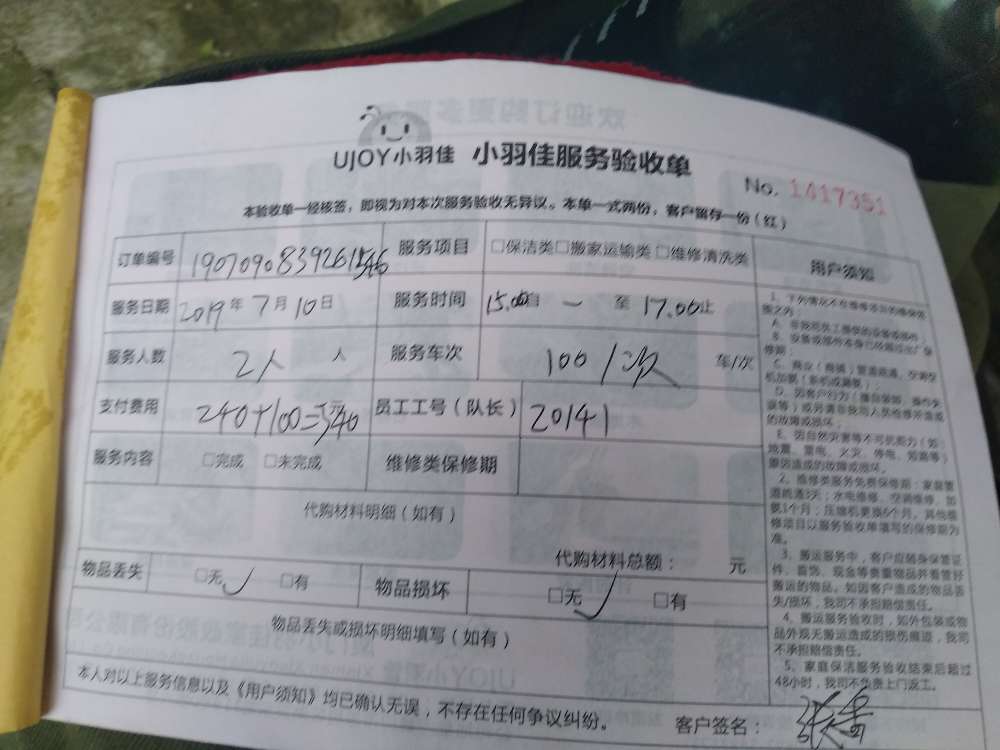 UJOY小羽佳 小羽佳服务验收单
No. 1417351
本验收单一经核签，即视为对本次服务验收无异议。本单一式两份，客户留存一份（红）
订单编号 服务项目 □保洁类□搬家运输类□维修清洗类
服务日期 2019年7月10日 服务时间 15.00自 一 至 17.00止
服务人数 2人 人 服务车次 100/次 车/次
支付费用 240+100=340 员工工号（队长） 20141
服务内容 □完成 □未完成 维修类保修期
代购材料明细（如有）
代购材料总额： 元
物品丢失 □无 ✓ □有 物品损坏 □无 ✓ □有
物品丢失或损坏明细填写（如有）
本人对以上服务信息以及《用户须知》均已确认无误，不存在任何争议纠纷。
客户签名：
用户须知
1、下列情况不在维修类的维保范
围之内：
A、非我司员工提供的设备或部件；
B、设备或部件本身已经超过出厂保
修期；
C、商业（商铺）管道疏通、空调空
机加氨（新机或漏氨）；
D、因客户行为（擅自装卸、操作失
误等）或另请非我司人员检修所造成
的故障或损坏；
E、因自然灾害等不可抗能力（如：
地震、雷电、火灾、停电、短路等）
原因造成的故障或损坏。
2、维修类服务免费保修期：家庭管
道疏通3天；水电维修、空调维修、加
氨1个月；压缩机更换6个月。其他维
修项目以服务验收单填写的保修期为
准。
3、搬运服务中，客户应随身保管证
件、首饰、现金等贵重物品并看管好
搬运的物品。如因客户造成的物品丢
失/损坏，我司不承担赔偿责任。
4、搬运服务验收时，如外包装或物
品外观无搬运造成的损伤痕迹，我司
不承担赔偿责任。
5、家庭保洁服务验收结束后超过
48小时，我司不负责上门返工。